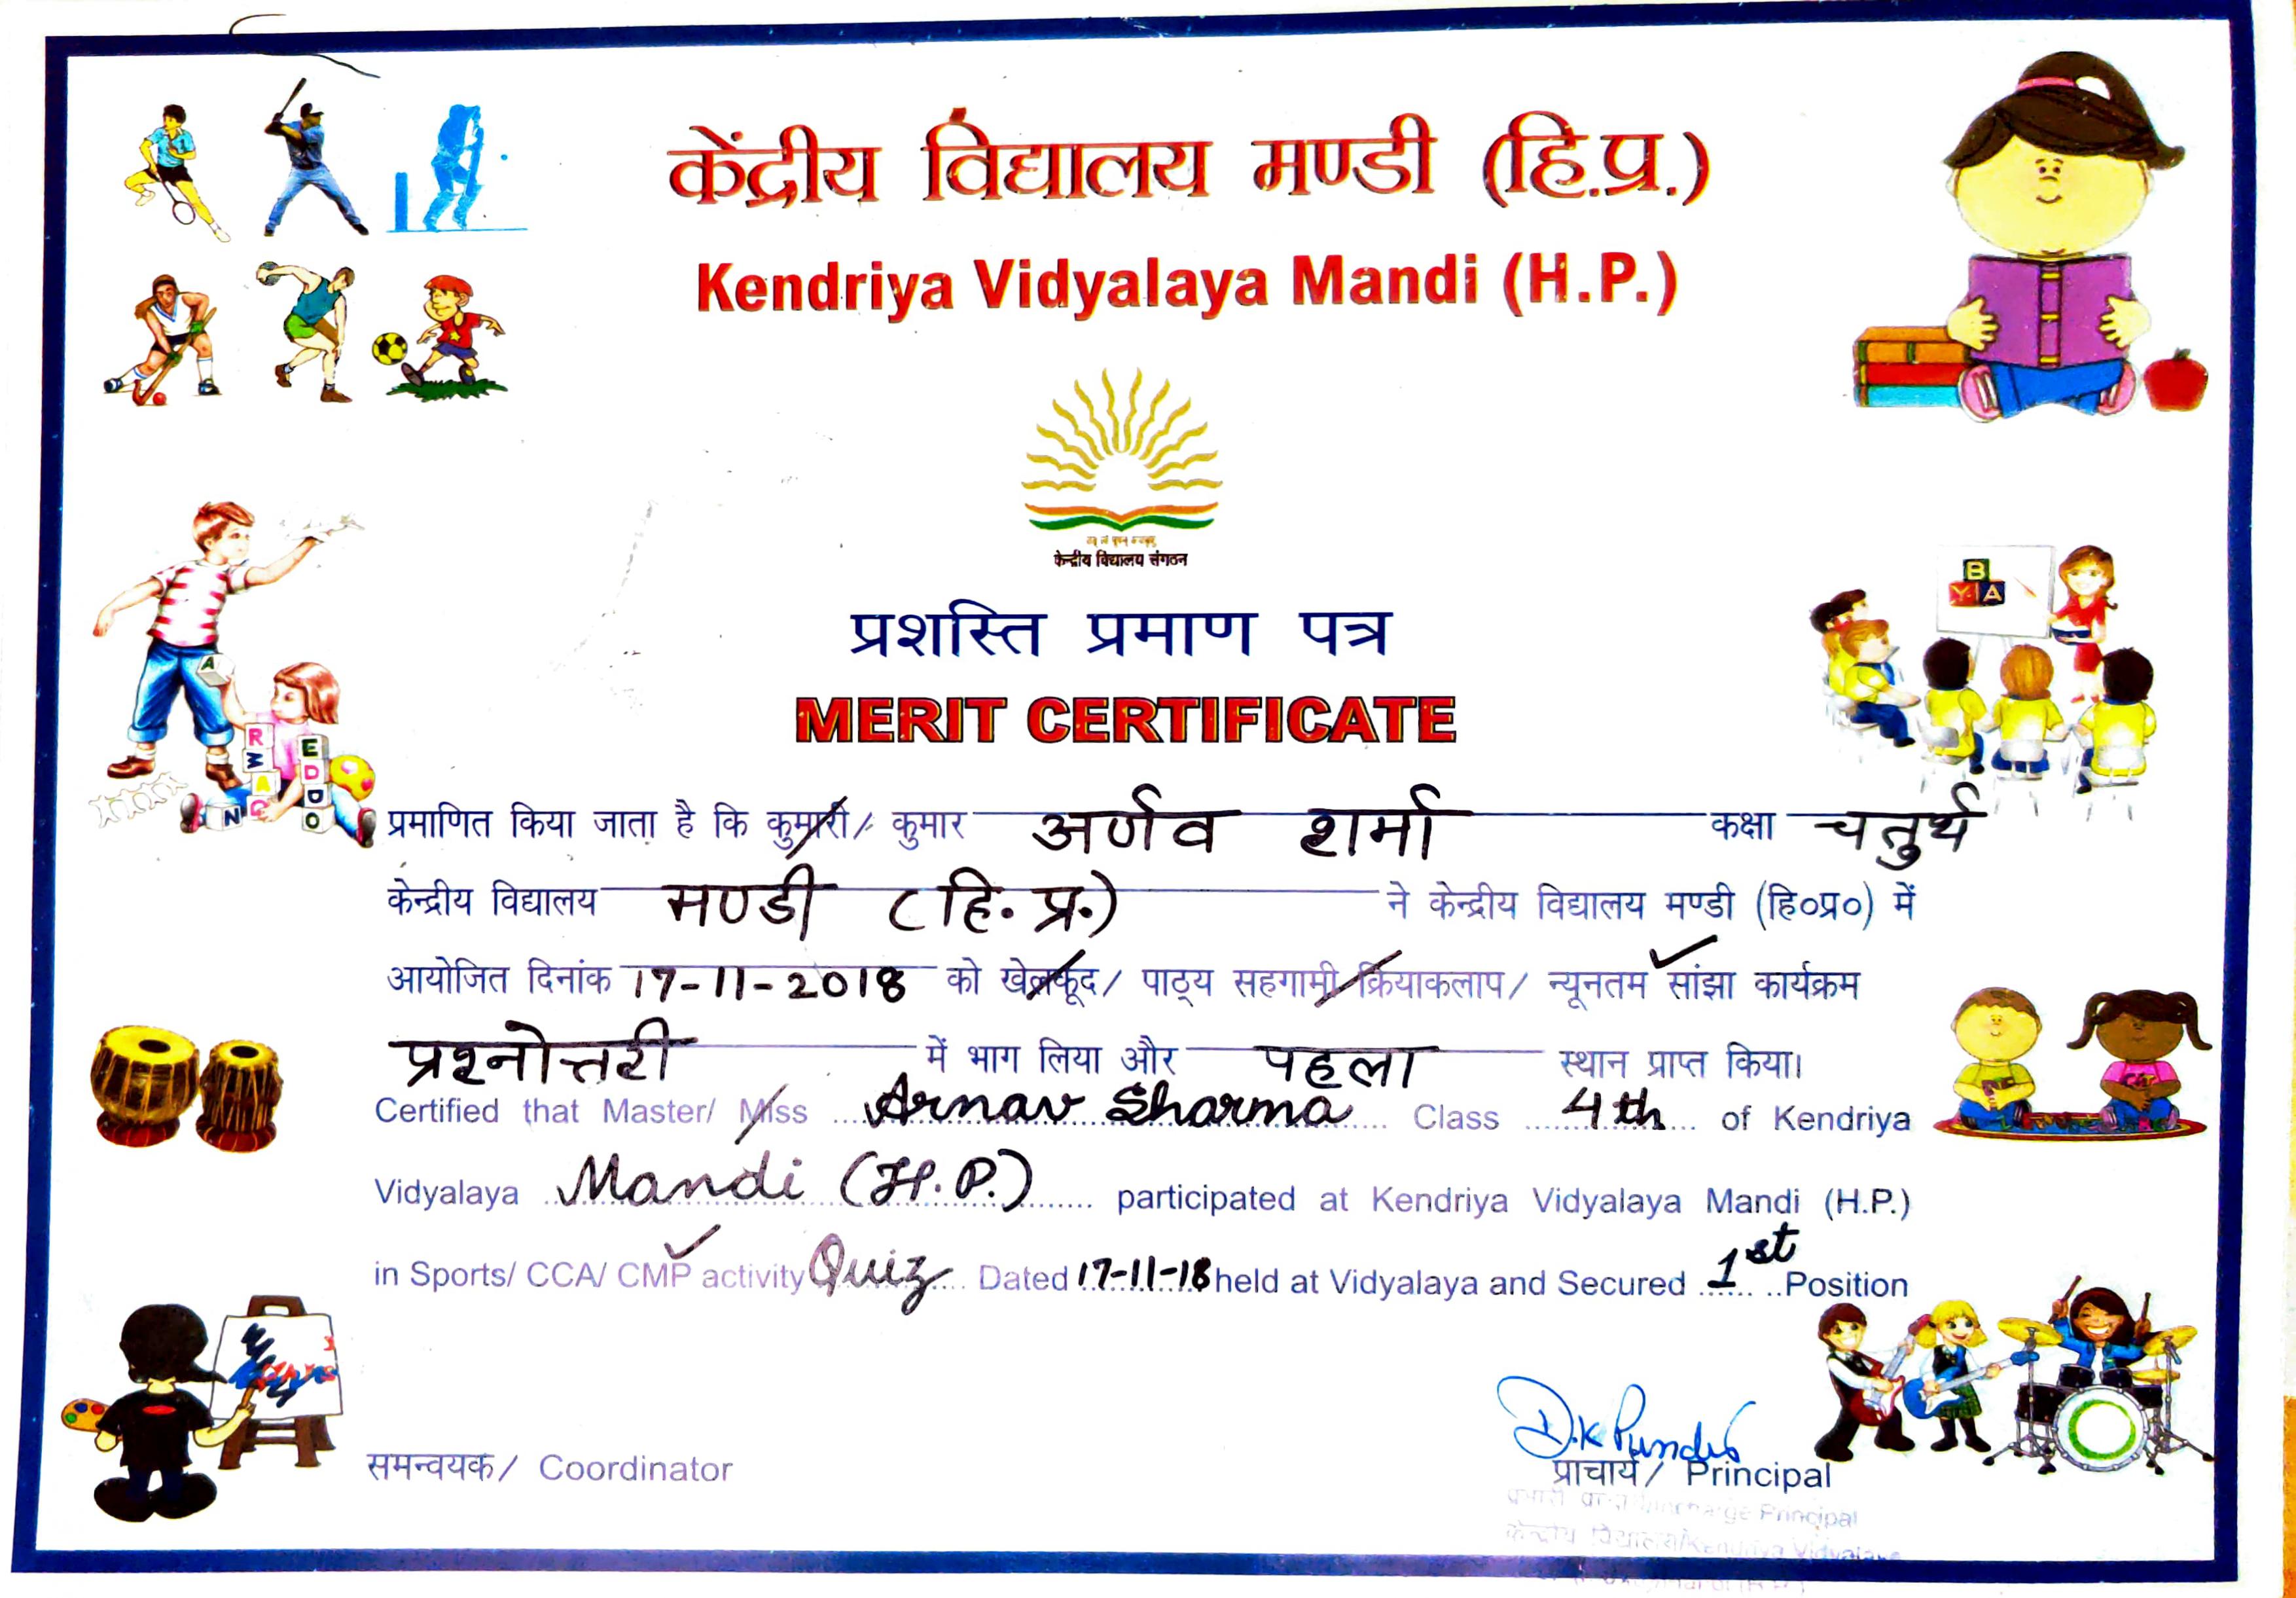 केंद्रीय विद्यालय मण्डी (हि.प्र.)
Kendriya Vidyalaya Mandi (H.P.)
केन्द्रीय विद्यालय संगठन
प्रशस्ति प्रमाण पत्र
MERIT CERTIFICATE
प्रमाणित किया जाता है कि कुमारी/ कुमार अर्णव शर्मा कक्षा चतुर्थ
केन्द्रीय विद्यालय मण्डी (हि.प्र.) ने केन्द्रीय विद्यालय मण्डी (हि०प्र०) में
आयोजित दिनांक 17-11-2018 को खेलकूद/ पाठ्य सहगामी क्रियाकलाप/ न्यूनतम सांझा कार्यक्रम
प्रश्नोत्तरी में भाग लिया और पहला स्थान प्राप्त किया।
Certified that Master/ Miss Arnav Sharma Class 4th of Kendriya
Vidyalaya Mandi (H.P.) participated at Kendriya Vidyalaya Mandi (H.P.)
in Sports/ CCA/ CMP activity Quiz Dated 17-11-18 held at Vidyalaya and Secured 1st Position
D.K Pundir
समन्वयक/ Coordinator प्राचार्य/ Principal
Principal
Kendriya Vidyalaya